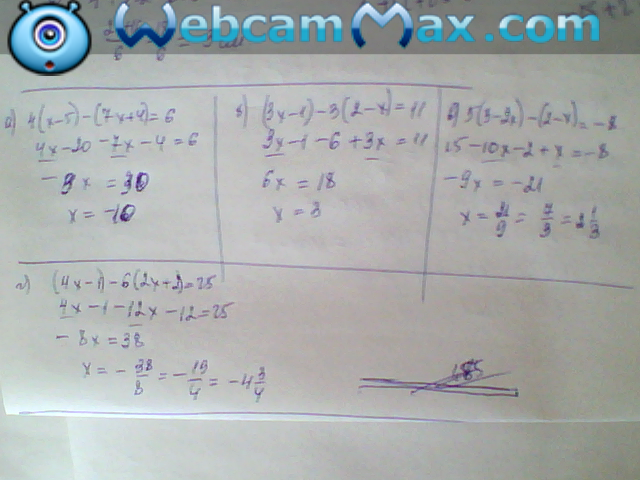 WebcamMax.com
а) 4(x-5)-(7x+4)=6
4x-20-7x-4=6
-3x=30
x=-10
б) (3x-1)-3(2-x)=11
3x-1-6+3x=11
6x=18
x=3
в) 5(3-2x)-(2-x)=-8
15-10x-2+x=-8
-9x=-21
x=21/9=7/3=2 1/3
г) (4x-1)-6(2x+2)=25
4x-1-12x-12=25
-8x=38
x=-38/8=-19/4=-4 3/4